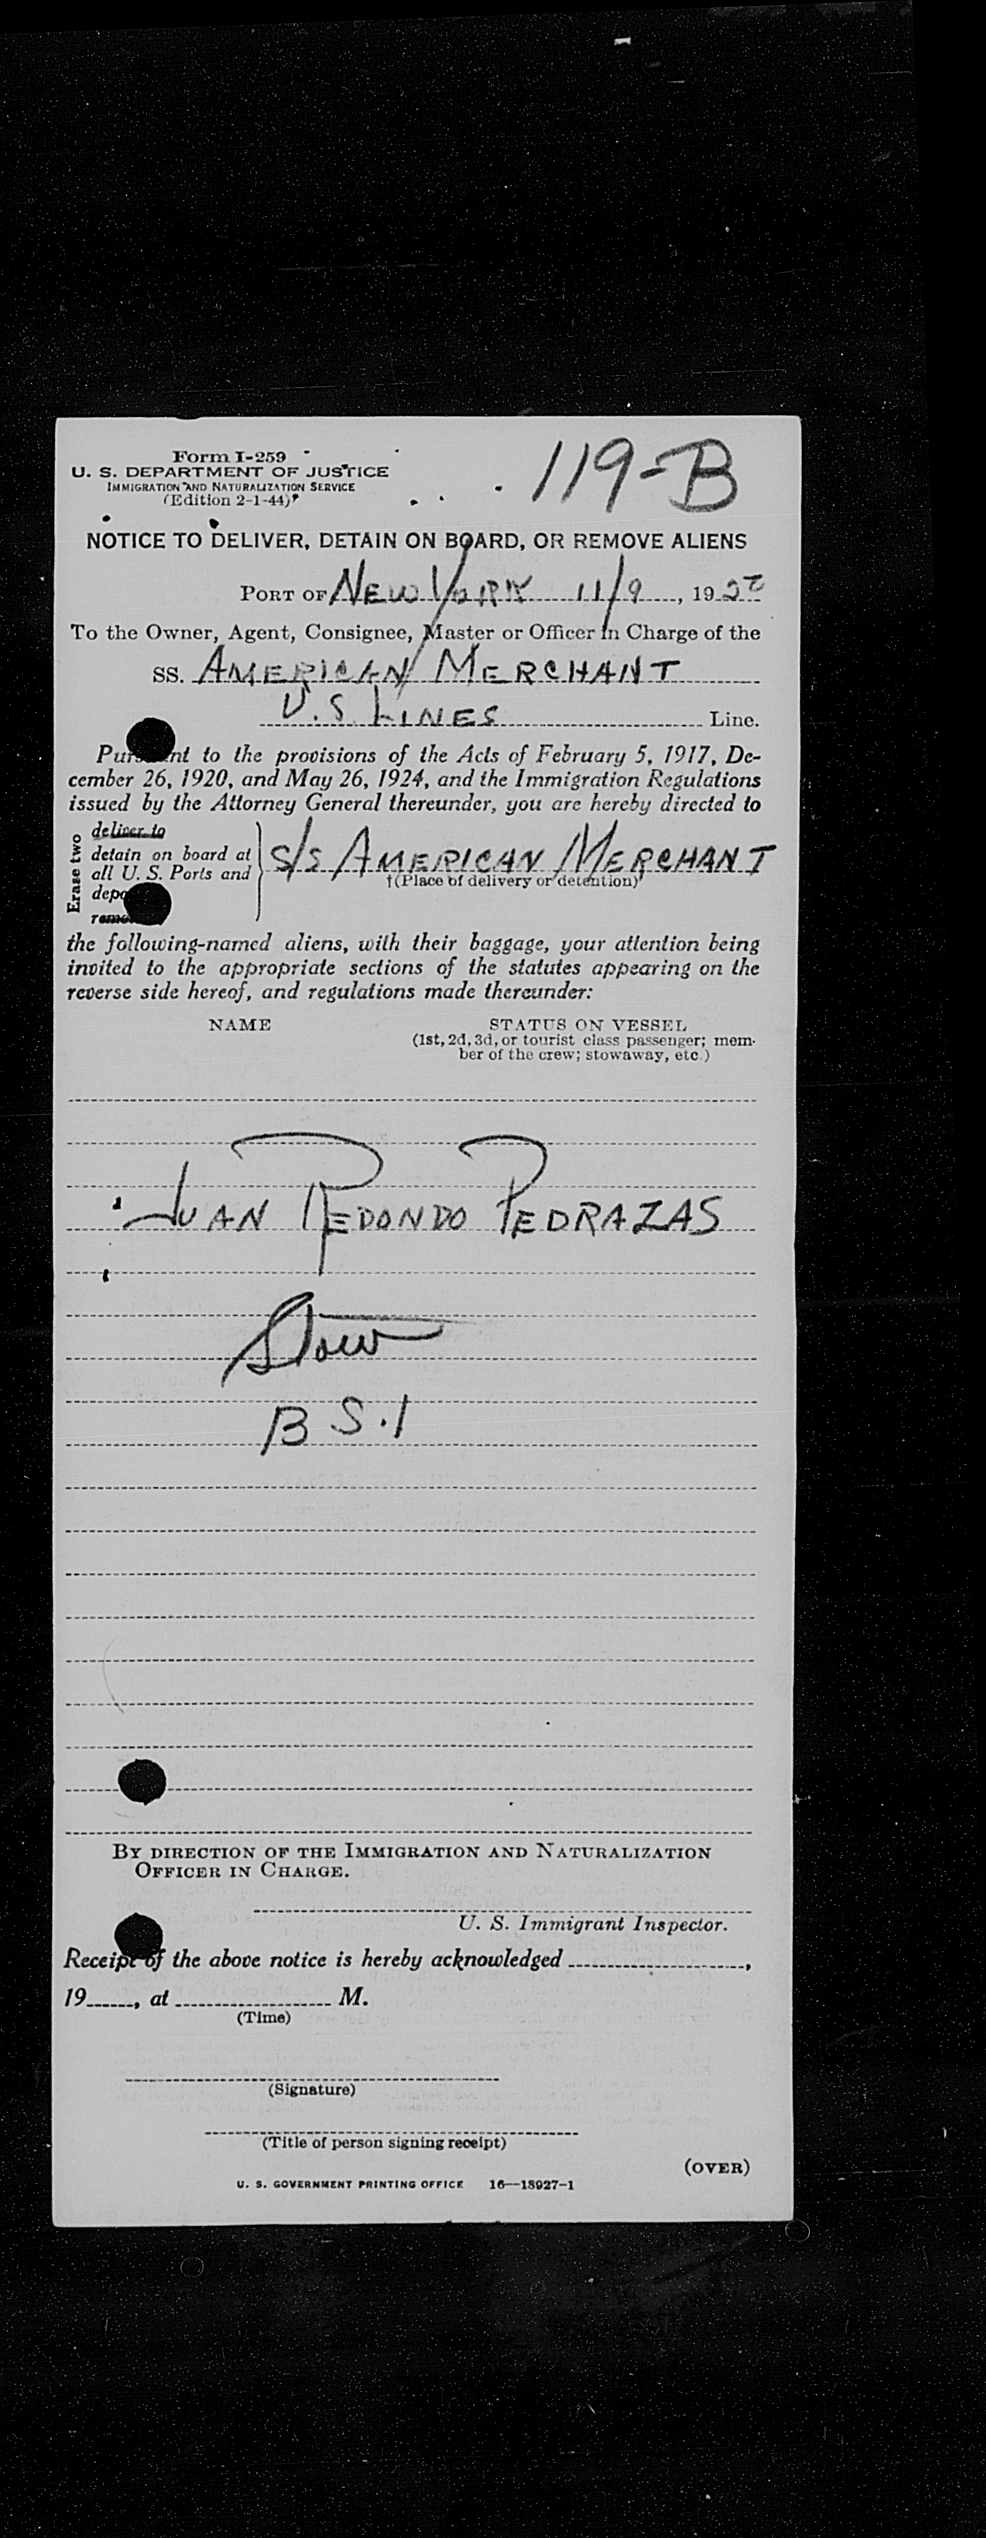 Form I-259
U. S. DEPARTMENT OF JUSTICE
IMMIGRATION AND NATURALIZATION SERVICE
(Edition 2-1-44)
119-B
NOTICE TO DELIVER, DETAIN ON BOARD, OR REMOVE ALIENS
PORT OF NEW YORK 11/9, 19
To the Owner, Agent, Consignee, Master or Officer in Charge of the
SS. AMERICAN MERCHANT
U.S. LINES Line.
Pursuant to the provisions of the Acts of February 5, 1917, De-
cember 26, 1920, and May 26, 1924, and the Immigration Regulations
issued by the Attorney General thereunder, you are hereby directed to
Erase two
deliver to
detain on board at
all U. S. Ports and
S/S AMERICAN MERCHANT
†(Place of delivery or detention)
the following-named aliens, with their baggage, your attention being
invited to the appropriate sections of the statutes appearing on the
reverse side hereof, and regulations made thereunder:
NAME STATUS ON VESSEL
(1st, 2d, 3d, or tourist class passenger; mem-
ber of the crew; stowaway, etc.)
JUAN REDONDO PEDRAZAS
Stow
B S.I
BY DIRECTION OF THE IMMIGRATION AND NATURALIZATION
OFFICER IN CHARGE.
U. S. Immigrant Inspector.
Receipt of the above notice is hereby acknowledged ,
19 , at M.
(Time)
(Signature)
(Title of person signing receipt)
(OVER)
U. S. GOVERNMENT PRINTING OFFICE 16—18927-1